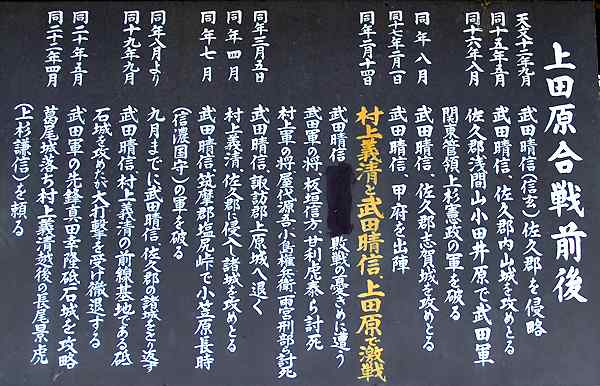 上田原合戦前後
天文十二年九月 武田晴信(信玄)佐久郡を侵略
同十五年五月 武田晴信、佐久郡内山城を攻めとる
同十六年八月 佐久郡浅間山小田井原で武田軍
関東管領上杉憲政の軍を破る
同年八月 武田晴信、佐久郡志賀城を攻めとる
同十七年二月一日 武田晴信、甲府を出陣
同年二月十四日 村上義清と武田晴信、上田原で激戦
武田晴信 敗戦の憂きめに遭う
武田軍の将、板垣信方、甘利虎泰ら討死
村上軍の将屋代源吾、小島権兵衛、雨宮刑部ら討死
同年三月五日 武田晴信、諏訪郡上原城へ退く
同年四月 村上義清、佐久郡に侵入し諸城を攻めとる
同年七月 武田晴信、筑摩郡塩尻峠で小笠原長時
(信濃国守)の軍を破る
同年八月より 九月までに武田晴信、佐久郡の諸城をとり返す
同十九年九月 武田晴信、村上義清の前線基地である砥
石城を攻めたが大打撃を受け撤退する
同二十年五月 武田軍の先鋒真田幸隆砥石城を攻略
同二十二年四月 葛尾城落ち村上義清越後の長尾景虎
(上杉謙信)を頼る